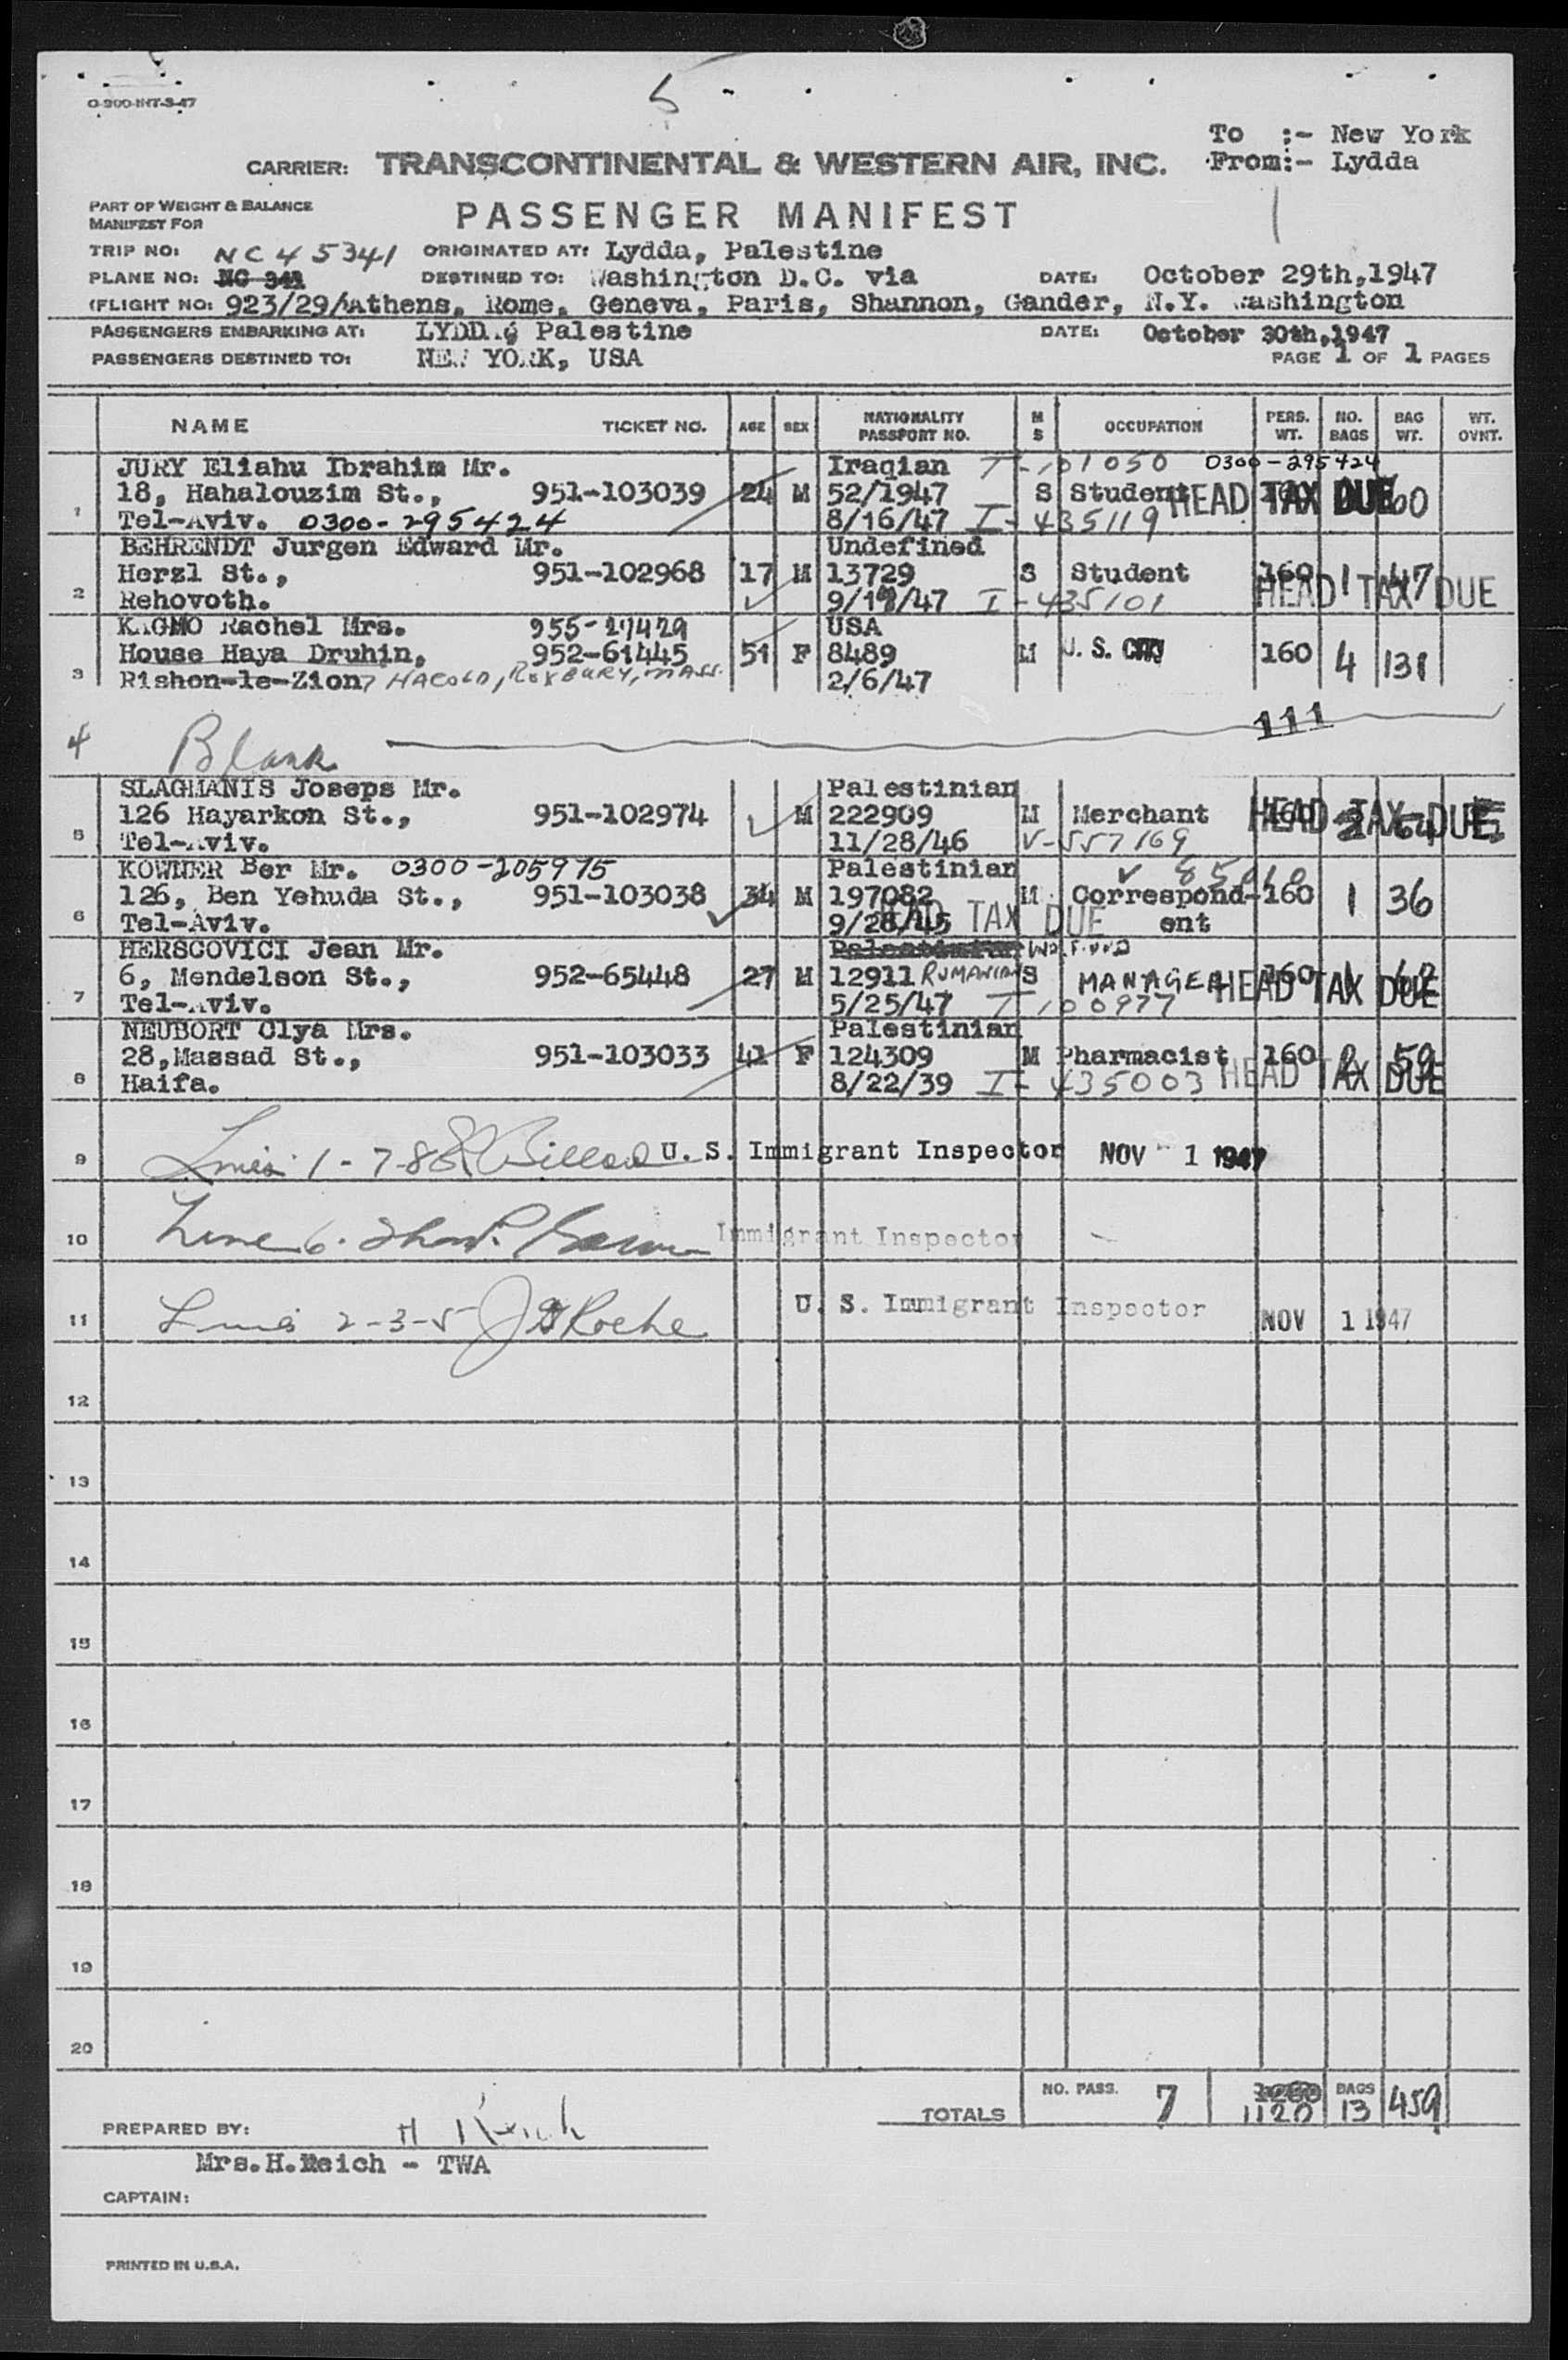 O-300-INT-3-47
5
To :- New York
CARRIER: TRANSCONTINENTAL & WESTERN AIR, INC. From:- Lydda
PART OF WEIGHT & BALANCE
MANIFEST FOR
PASSENGER MANIFEST
TRIP NO: NC 45341 ORIGINATED AT: Lydda, Palestine
PLANE NO: NC 341 DESTINED TO: Washington D.C. via DATE: October 29th,1947
(FLIGHT NO: 923/29/Athens, Rome, Geneva, Paris, Shannon, Gander, N.Y. Washington
PASSENGERS EMBARKING AT: LYDDA, Palestine DATE: October 30th,1947
PASSENGERS DESTINED TO: NEW YORK, USA PAGE 1 OF 1 PAGES
NAME TICKET NO. AGE SEX NATIONALITY PASSPORT NO. M S OCCUPATION PERS. WT. NO. BAGS BAG WT. WT. OVNT.
JURY Eliahu Ibrahim Mr. Iraqian T-101050 0300-295424
18, Hahalouzim St., 951-103039 24 M 52/1947 S Student HEAD TAX DUE 60
1 Tel-Aviv. 0300-295424 8/16/47 I-435119
BEHRENDT Jurgen Edward Mr. Undefined
Herzl St., 951-102968 17 M 13729 S Student 160 1 47
2 Rehovoth. I-435101 HEAD TAX DUE
Rachel Mrs. 955-27429 USA
House Haya Druhin, 952-61445 51 F 8489 M U. S. 160 4 131
3 Rishon-le-Zion 7 HAROLD, ROXBURY, MASS. 2/6/47
111
4 Blank
SLAGMANIS Joseps Mr. Palestinian
126 Hayarkon St., 951-102974 M 222909 M Merchant 160 HEAD TAX DUE
5 Tel-Aviv. 11/28/46 V-557169
KOWNER Ber Mr. 0300-205975 Palestinian V
126, Ben Yehuda St., 951-103038 34 M 197082 M Correspond- 160 1 36
6 Tel-Aviv. 9/28/45 HEAD TAX DUE ent
HERSCOVICI Jean Mr. Palestinian
6, Mendelson St., 952-65448 27 M 12911 RUMANIAN S MANAGER 160 HEAD TAX DUE
7 Tel-Aviv. 5/25/47 T 100977
NEUBORT Olya Mrs. Palestinian
28,Massad St., 951-103033 41 F 124309 M Pharmacist 160 2 59
8 Haifa. 8/22/39 I-435003 HEAD TAX DUE
9 Lines 1-7-8 U. S. Immigrant Inspector NOV 1 1947
10 Line 6. Immigrant Inspector
11 Lines 2-3-5 Roche U. S. Immigrant Inspector NOV 1 1947
12
13
14
15
16
17
18
19
20
TOTALS NO. PASS. 7 1120 BAGS 13 459
PREPARED BY: H Reich
Mrs.H.Reich - TWA
CAPTAIN:
PRINTED IN U.S.A.